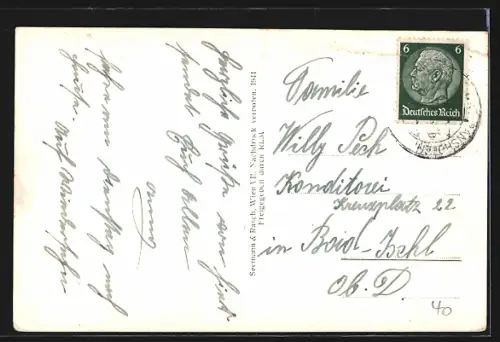 Herzliche Grüße von hier
sendet Euch Allen
Anna
fahre am Dienstag nach
Hause. Auf Wiedersehn
Seemann & Rauch, Wien VII. Nachdruck verboten. 1941
Freigegeben durch RLM
6 6
Deutsches Reich
Familie
Willy Pech
Konditorei
Kreuzplatz 22
in Bad-Ischl
Ob. D
40